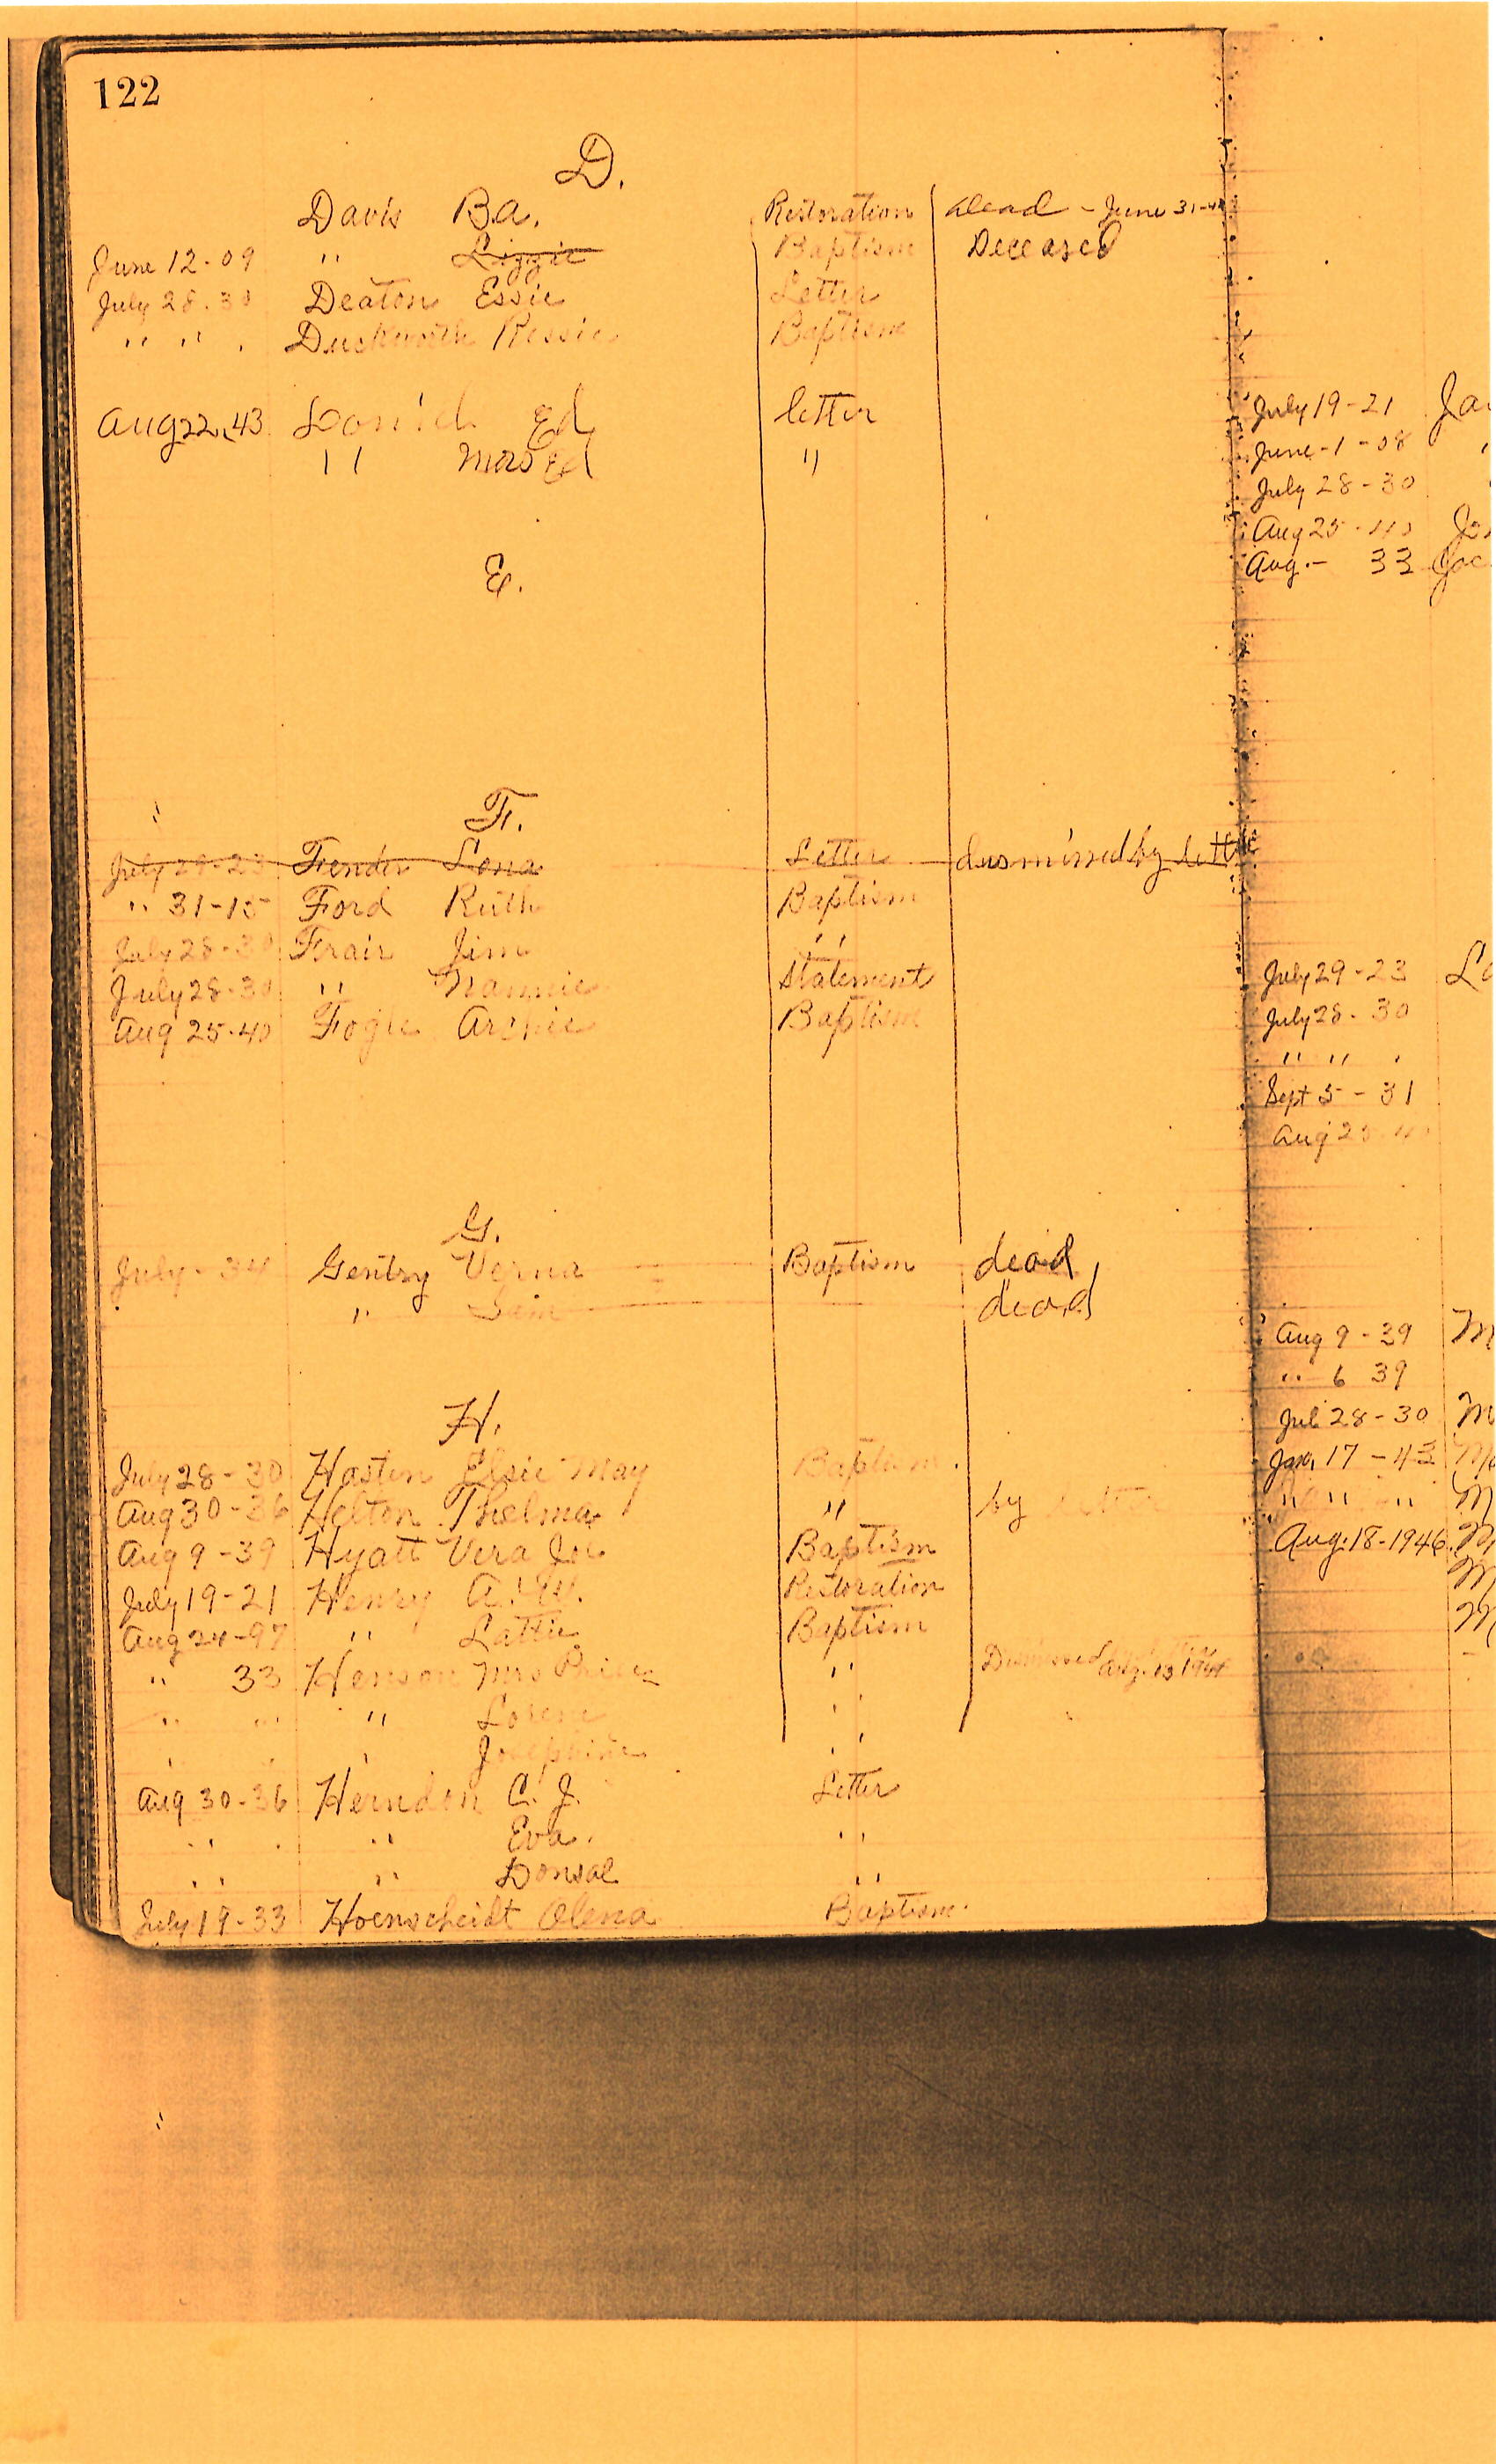 122
D.
Davis B.A. Restoration dead - June 31-
June 12-09 " Lizzie Baptism Deceased
July 28-30 Deaton Essie Letter
" " . Duckworth Baptism
Aug 22, 43 Ed letter
" Mrs Ed "
E.
F.
July 29-23 Fender Lona Letter dismissed by
" 31-15 Ford Ruth Baptism
July 28-30 Frair Jim "
July 28-30 " Nannie Statement
Aug 25-40 Fogle Archie Baptism
G.
July - 34 Gentry Verna Baptism dead
" dead
H.
July 28-30 Hasten Elsie May Baptism.
Aug 30-36 Helton Thelma " by letter
Aug 9-39 Hyatt Vera Joe Baptism
July 19-21 Henry A. W. Restoration
Aug 24-97 " Baptism
" 33 Henson Mrs " Dismissed Aug. 13 1944
" " " Lorene "
" " " Josephine "
Aug 30-36 Herndon C. J. Letter
" . " Eva. "
" " Donsal "
July 19-33 Hoenscheidt Olena Baptism.
July 19-21
June-1-08
July 28-30
Aug 25-40
Aug.- 33
July 29-23
July 28-30
" " .
Sept 5-31
Aug 25-40
Aug 9-39
" 6 39
Jul 28-30
Jan, 17-43
" " "
Aug. 18-1946